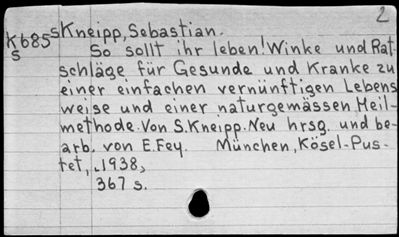 2
K685s Kneipp, Sebastian.
s So sollt ihr leben! Winke und Rat-
schläge für Gesunde und Kranke zu
einer einfachen vernünftigen Lebens
weise und einer naturgemässen Heil-
methode. Von S. Kneipp. Neu hrsg. und be-
arb. von E. Fey. München, Kösel-Pus-
tet, [1938]
367 s.